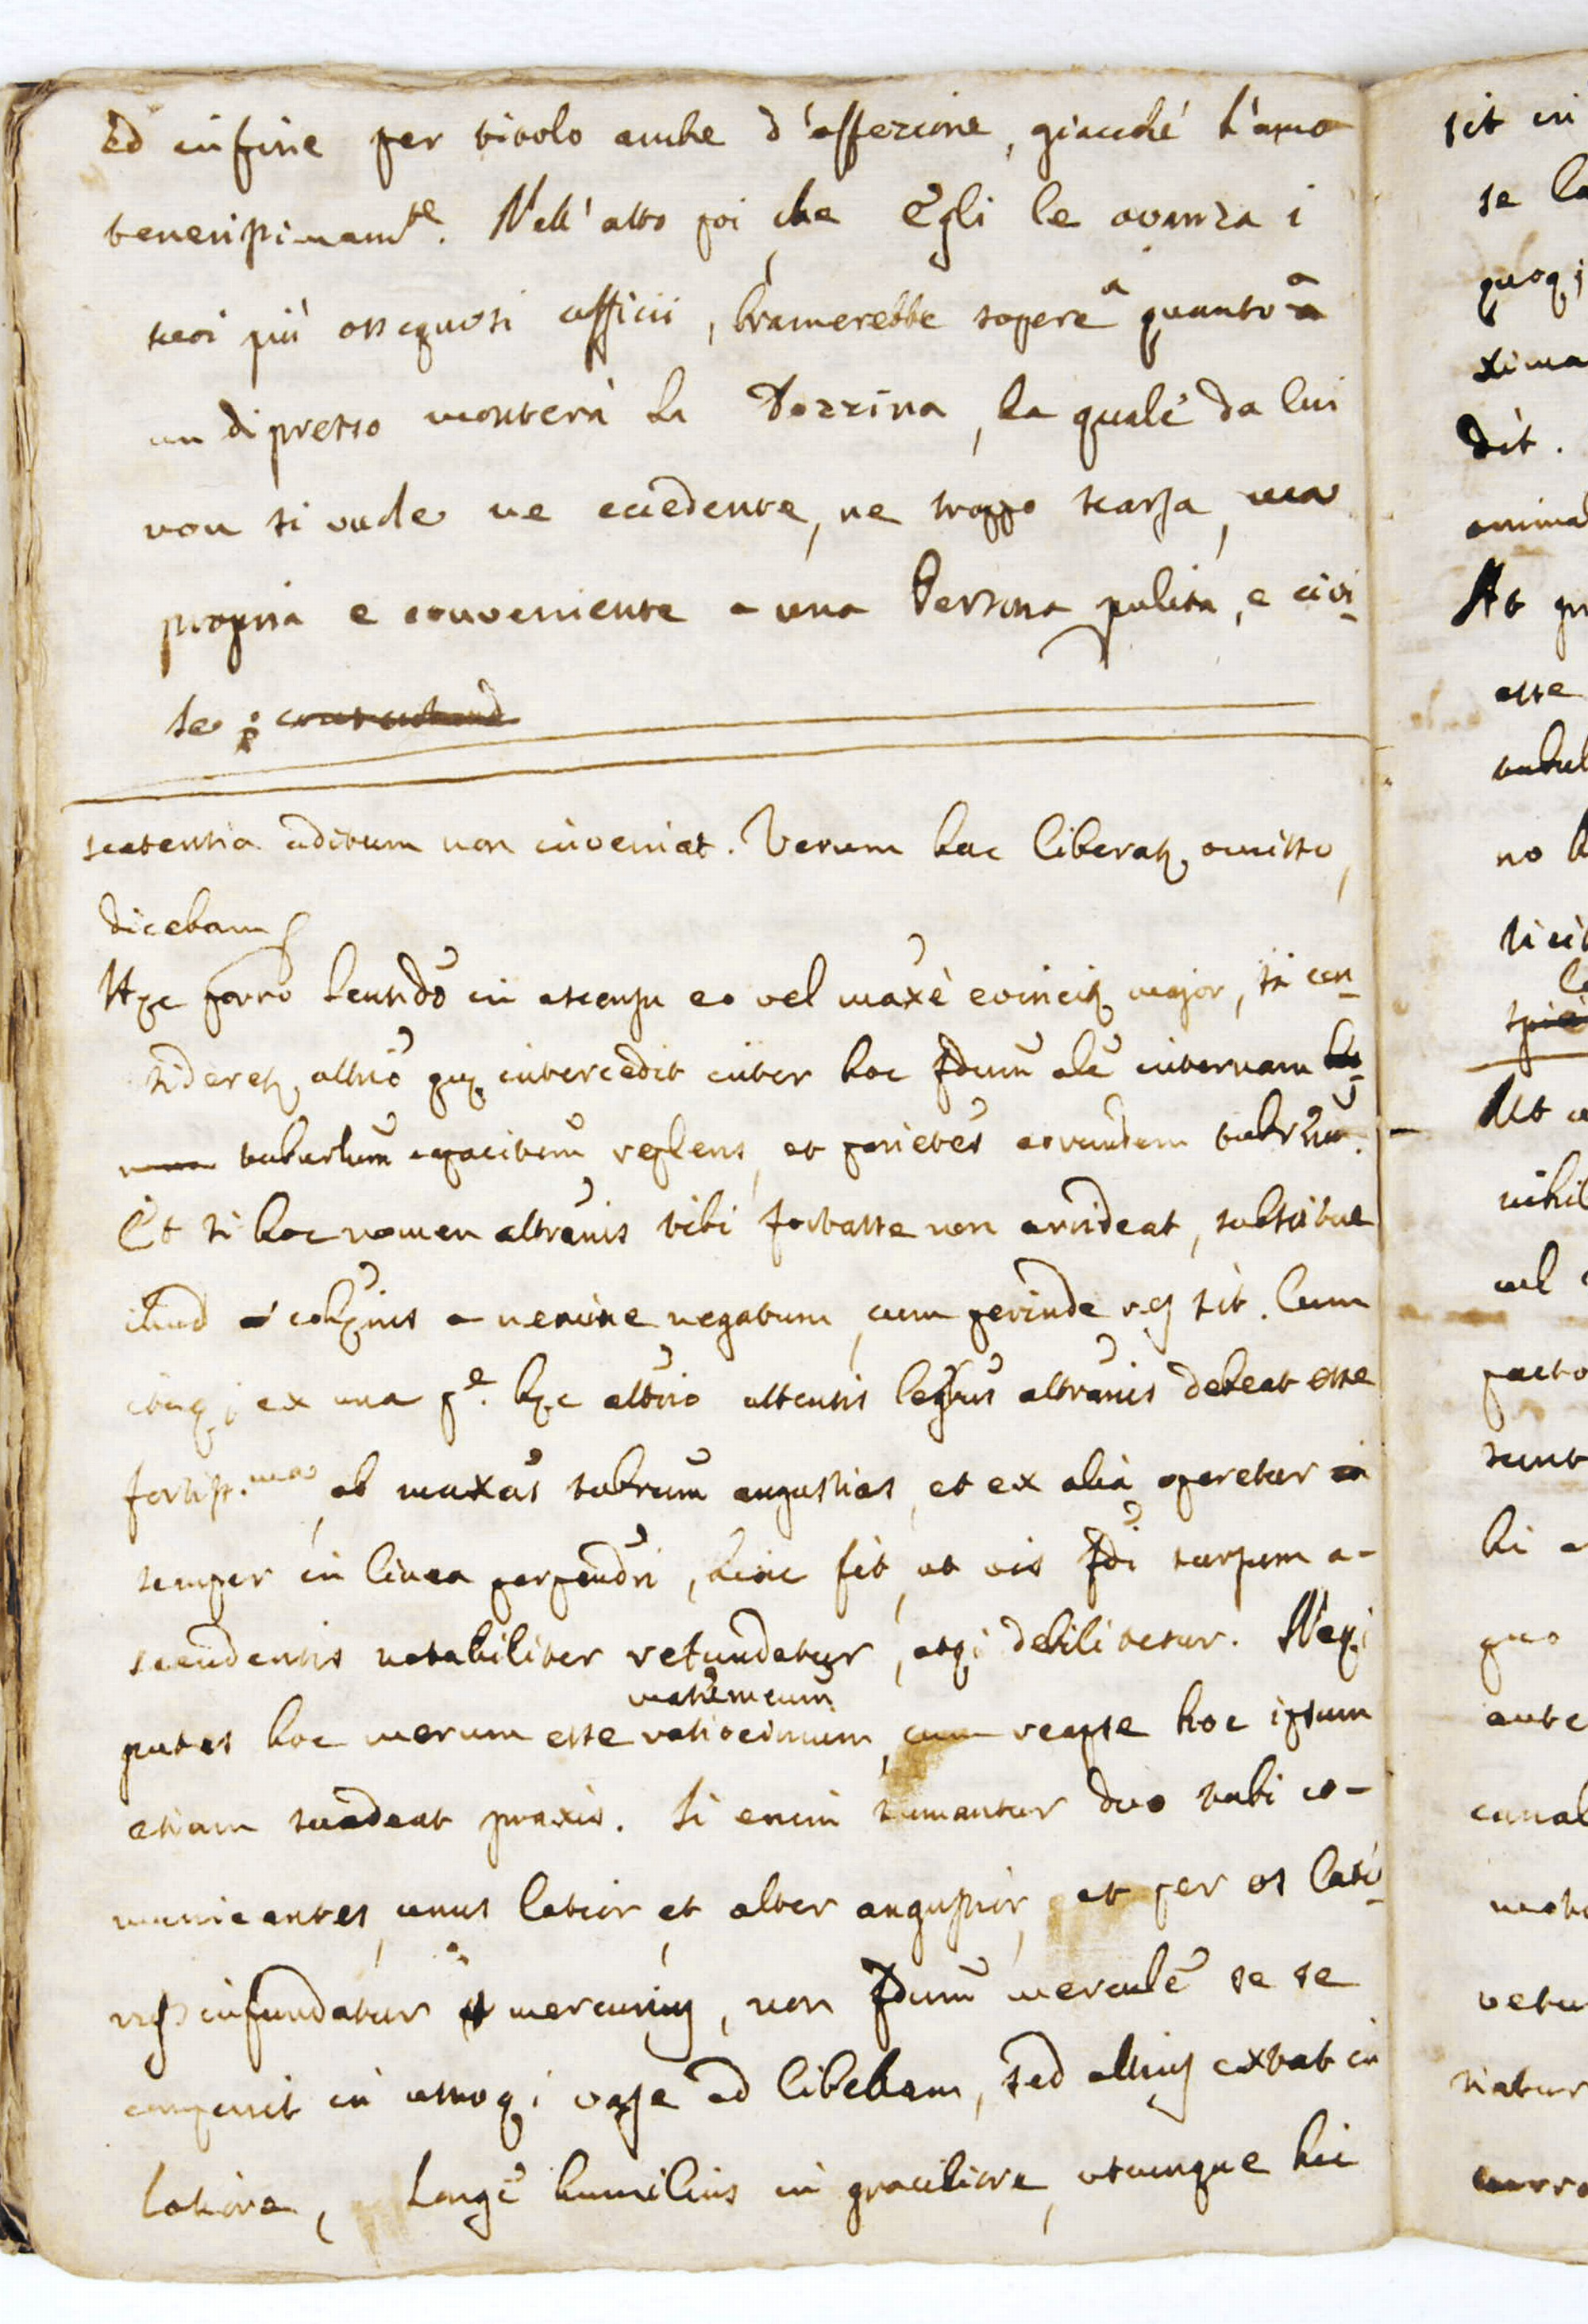 Ed infine per titolo anche d'affezione, giacché l'ama
tenerissimam.te. Nell'atto poi che Egli le avanza i
suoi più ossequiosi ufficii, bramerebbe sapere a quanto a
un dipresso monterà la Dozzina, la quale da lui
non si vuole ne eccedente, ne troppo scarsa, ma
propria e conveniente a una Persona pulita, e civi-
le
scatentia aditum non inveniat. Verum hac liberatq. omitto,
dicebam
Hęc porro lentido in ascensu eo vel maxè evincitq. major, si con-
sideretq. attrio quę intercedit inter hoc fdum ale internam
tubulum capacitem replens, et parietes eorundem tubrum.
Et si hoc nomen attranis tibi fortasse non arrideat, substitue
illud cohęnis a nemine negatum, cum perinde sit. Cum
itaq; ex una p.e hęc attrio attentis legbus attranis debeat esse
fortiss.ma ob maxas tubrum angustias, et ex alia operetur
semper in linea perpendri, hinc fit, ut vis fdi sursum a-
scendentis notabiliter retundatur, atq; debilitetur. Neq;
mathemcum
putes hoc merum esse ratiocinium, cum reapse hoc ipsum
etiam suadeat praxis. Si enim sumantur duo tubi co-
municantes, unus latior, et alter angustior, et per os latio-
ris infundatur mercurius, non fdum mercule se se
componit in utroq; vase ad libellam, sed altius extat in
latiore, longe humilius in graciliore, utcunque hic
sit in
se la
quoq;
xima
dit.
animal
At
esse
tubul
no
Ut
nihil
vel
pacto
sunt
hi
quo
ante
canal
vetu
natur